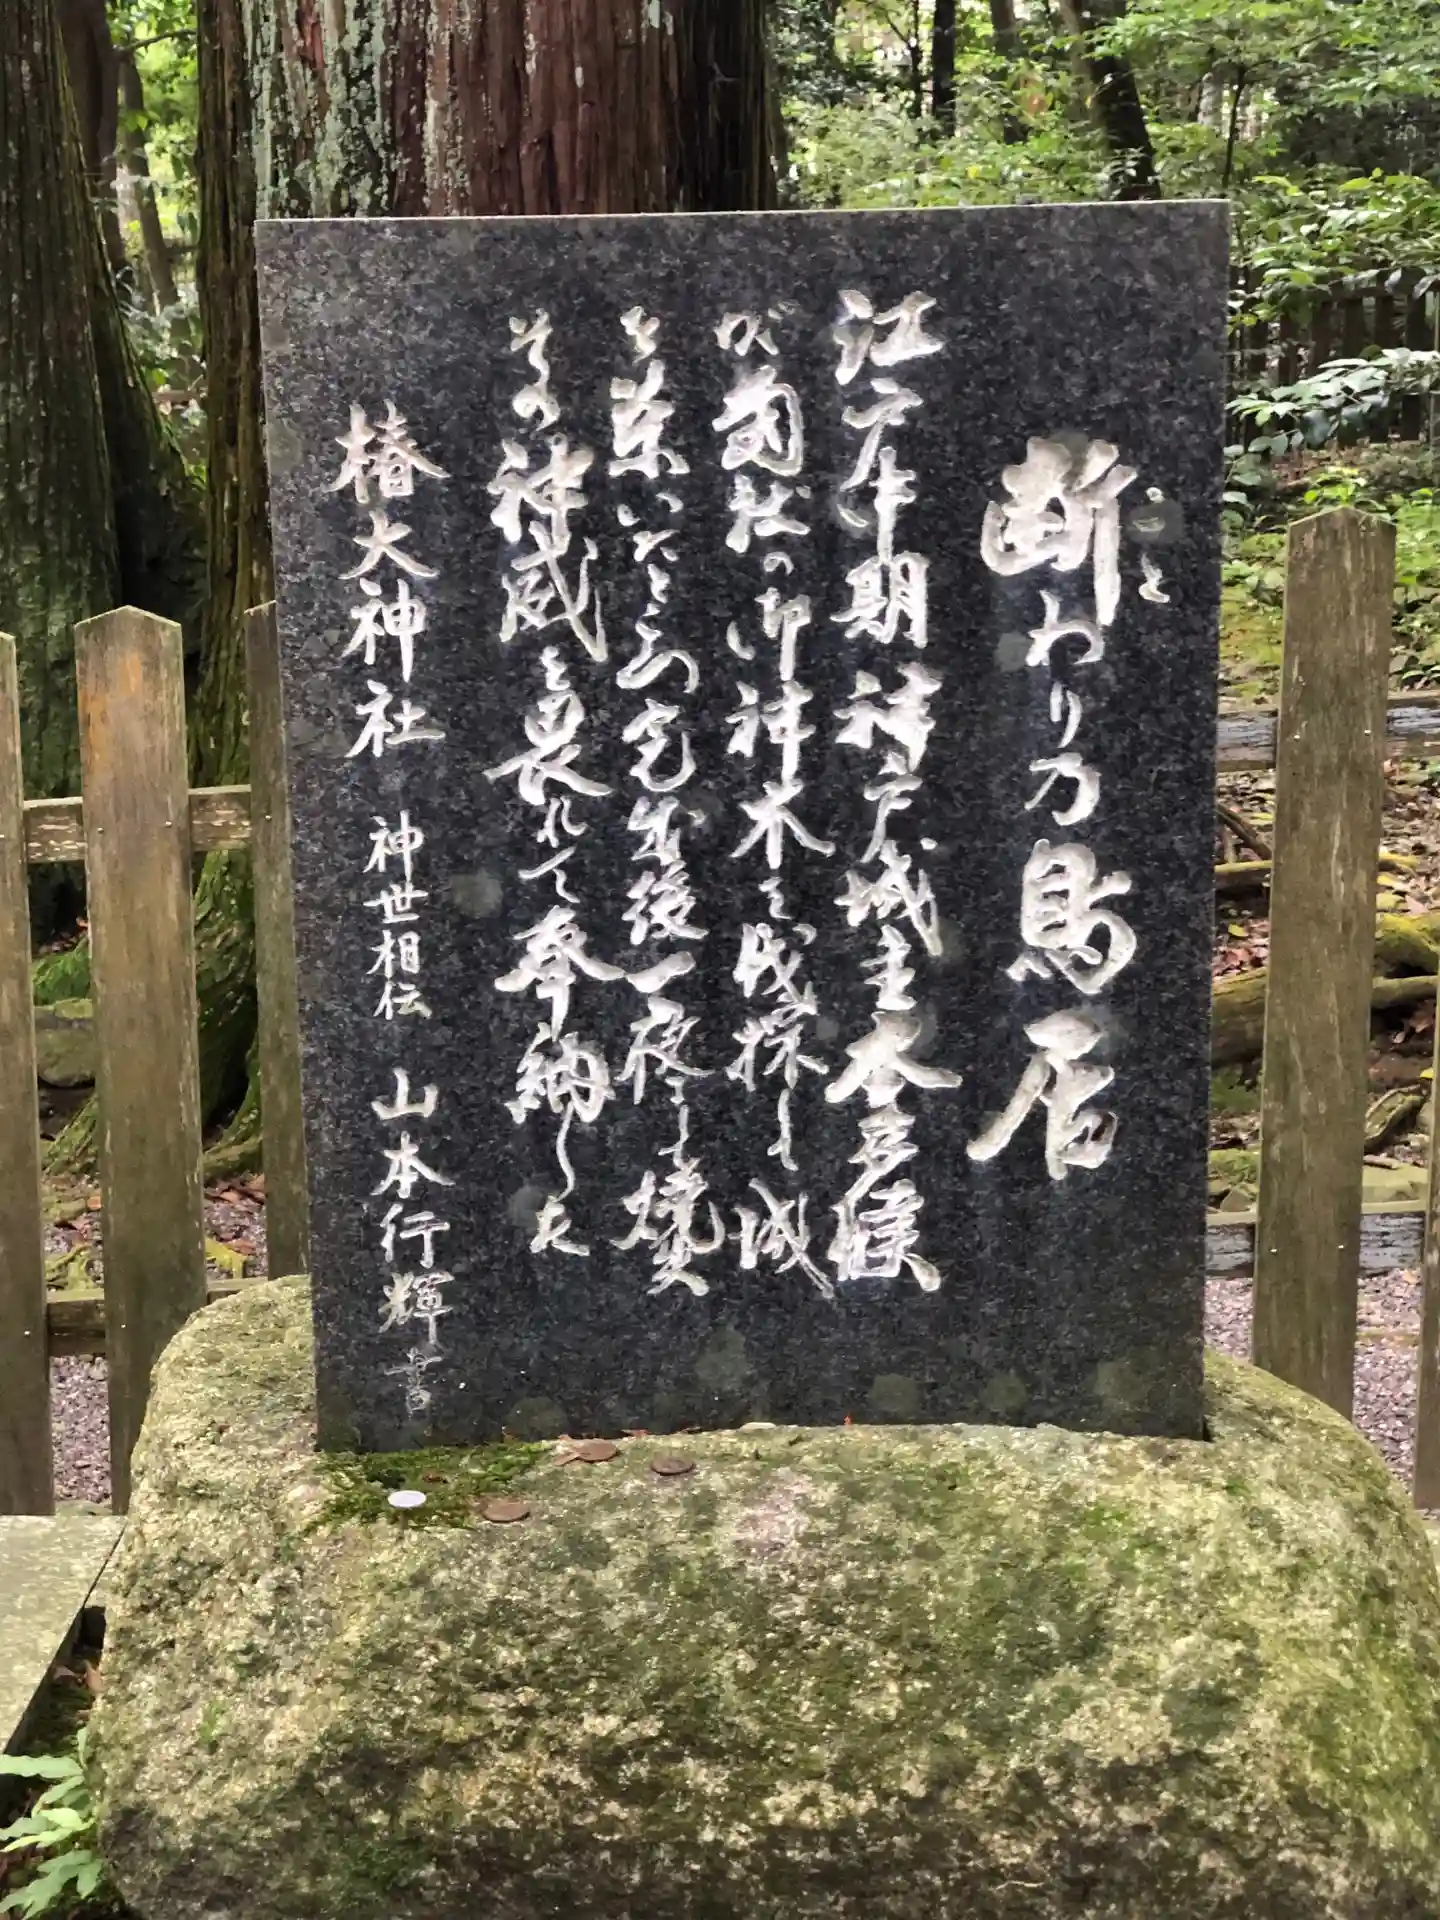 断わり乃鳥居
こと
江戸中期神戸城主本多候
が當社の御神木を伐採し城
を築いたところ完成後一夜にし焼失
その神威を畏れて奉納した
椿大神社 神世相伝 山本行輝 書